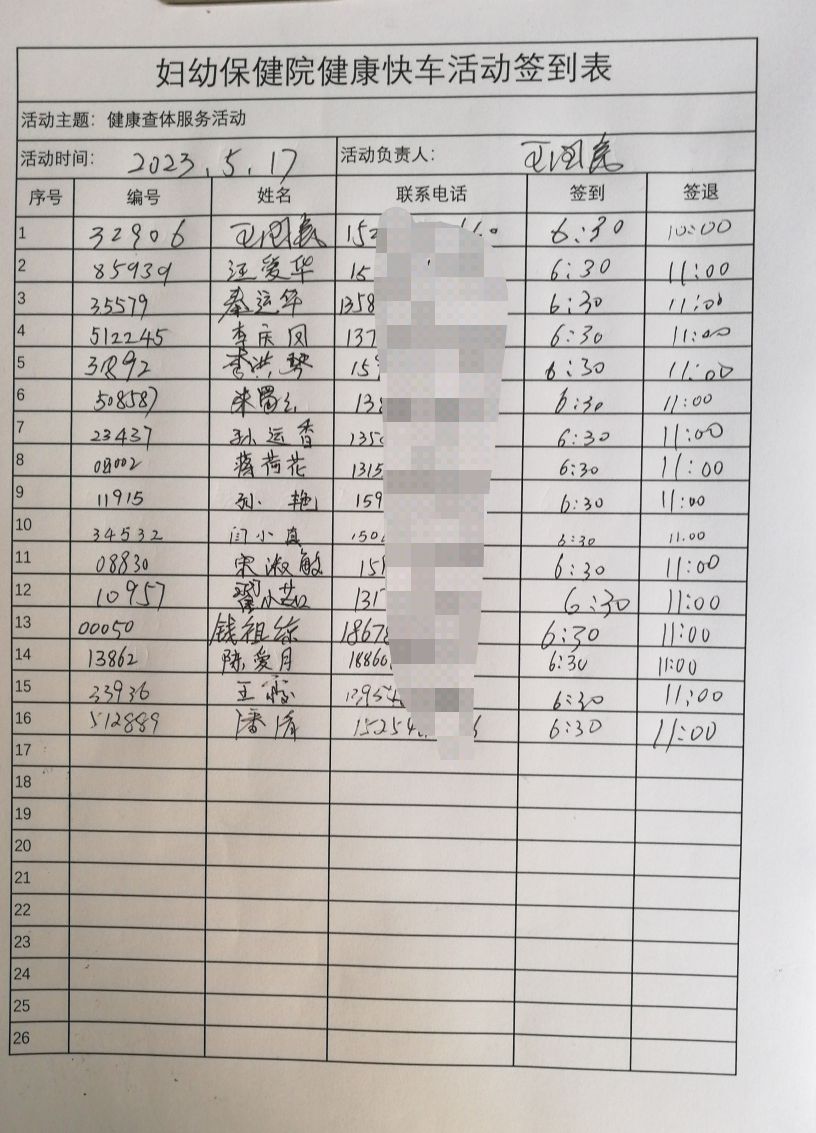 妇幼保健院健康快车活动签到表
活动主题：健康查体服务活动
活动时间： 2023.5.17 活动负责人： 王国
序号 编号 姓名 联系电话 签到 签退
1 32906 王国 152 6:30 10:00
2 85939 汪爱华 15 6:30 11:00
3 35579 秦运华 1358 6:30 11:00
4 512245 李庆凤 137 6:30 11:00
5 31892 李洪 159 6:30 11:00
6 508587 138 6:30 11:00
7 23437 孙运香 1350 6:30 11:00
8 蒋荷花 1315 6:30 11:00
9 11915 孙艳 159 6:30 11:00
10 34532 闫小真 150 6:30 11.00
11 08830 宋淑敏 15 6:30 11:00
12 10957 翟小茹 131 6:30 11:00
13 00050 钱祖 1867 6:30 11:00
14 13862 陈爱月 18860 6:30 11:00
15 33936 王霞 6:30 11:00
16 512889 潘清 15254 6:30 11:00
17
18
19
20
21
22
23
24
25
26